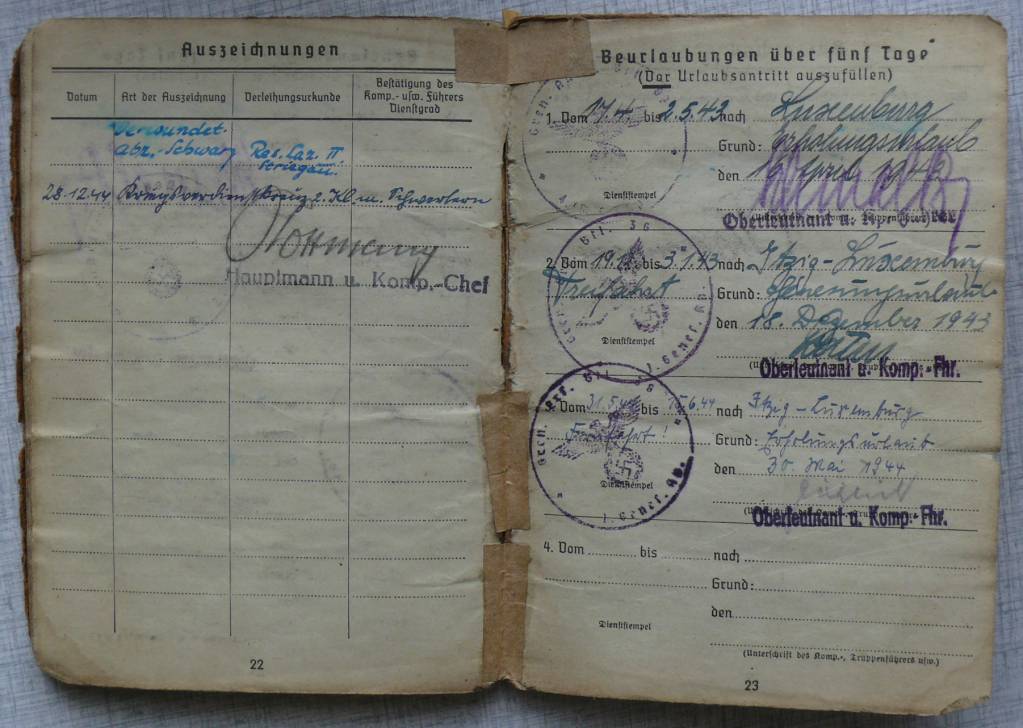 Auszeichnungen
Datum
Art der Auszeichnung
Verleihungsurkunde
Bestätigung des
Komp.- usw. Führers
Dienstgrad
Verwundet.
Abz.-Schwarz
Res. Laz. II
Striegau.
28.12.44 Kriegsverdienstkreuz 2. Kl. m. Schwertern
Hauptmann u. Komp.-Chef
22
Beurlaubungen über fünf Tage
(Vor Urlaubsantritt auszufüllen)
1. Vom 17.4. bis 2.5.43 nach Luxemburg
Grund: Erholungsurlaub
den 16. April 1943
Dienststempel
Oberleutnant u.
2. Vom 19.12. bis 3.1.43 nach Itzig-Luxemburg
Freifahrt
Grund: Genesungsurlaub
den 18. Dezember 1943
Dienststempel
Oberleutnant u. Komp.-Fhr.
Vom 31.5.44 bis 6.44 nach Itzig-Luxemburg
Freifahrt!
Grund: Erholungsurlaub
den 30. Mai 1944
Dienststempel
Oberleutnant u. Komp.-Fhr.
4. Vom bis nach
Grund:
den
Dienststempel
(Unterschrift des Komp.-, Truppenführers usw.)
23